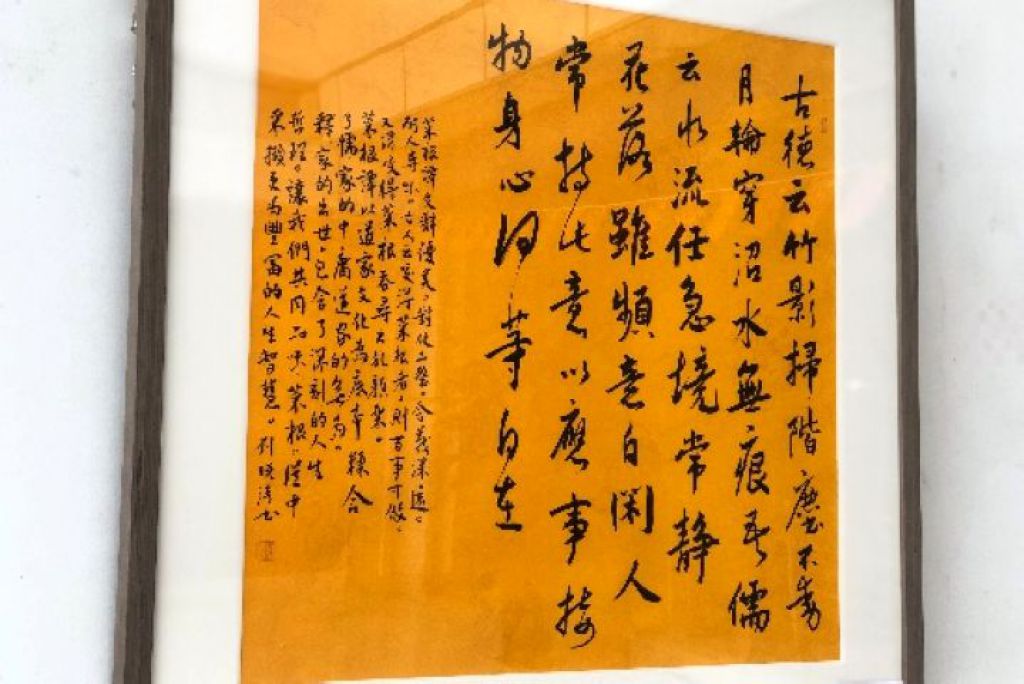 古德云竹影掃階塵不動
月輪穿沼水無痕吾儒
云水流任急境常靜
花落雖頻意自閑人
常持此意以應事接
物身心何等自在
菜根譚文辭優美。對仗工整。含義深遠。
耐人尋味。古人云咬得菜根者。則百事可做。
又謂咬得菜根香尋出孔顏樂。
菜根譚以道家文化為底本糅合
了儒家的中庸道家的無為。
釋家的出世。包含了深刻的人生
哲理。讓我們共同品味菜根譚中
采擷更為豐富的人生智慧。劉